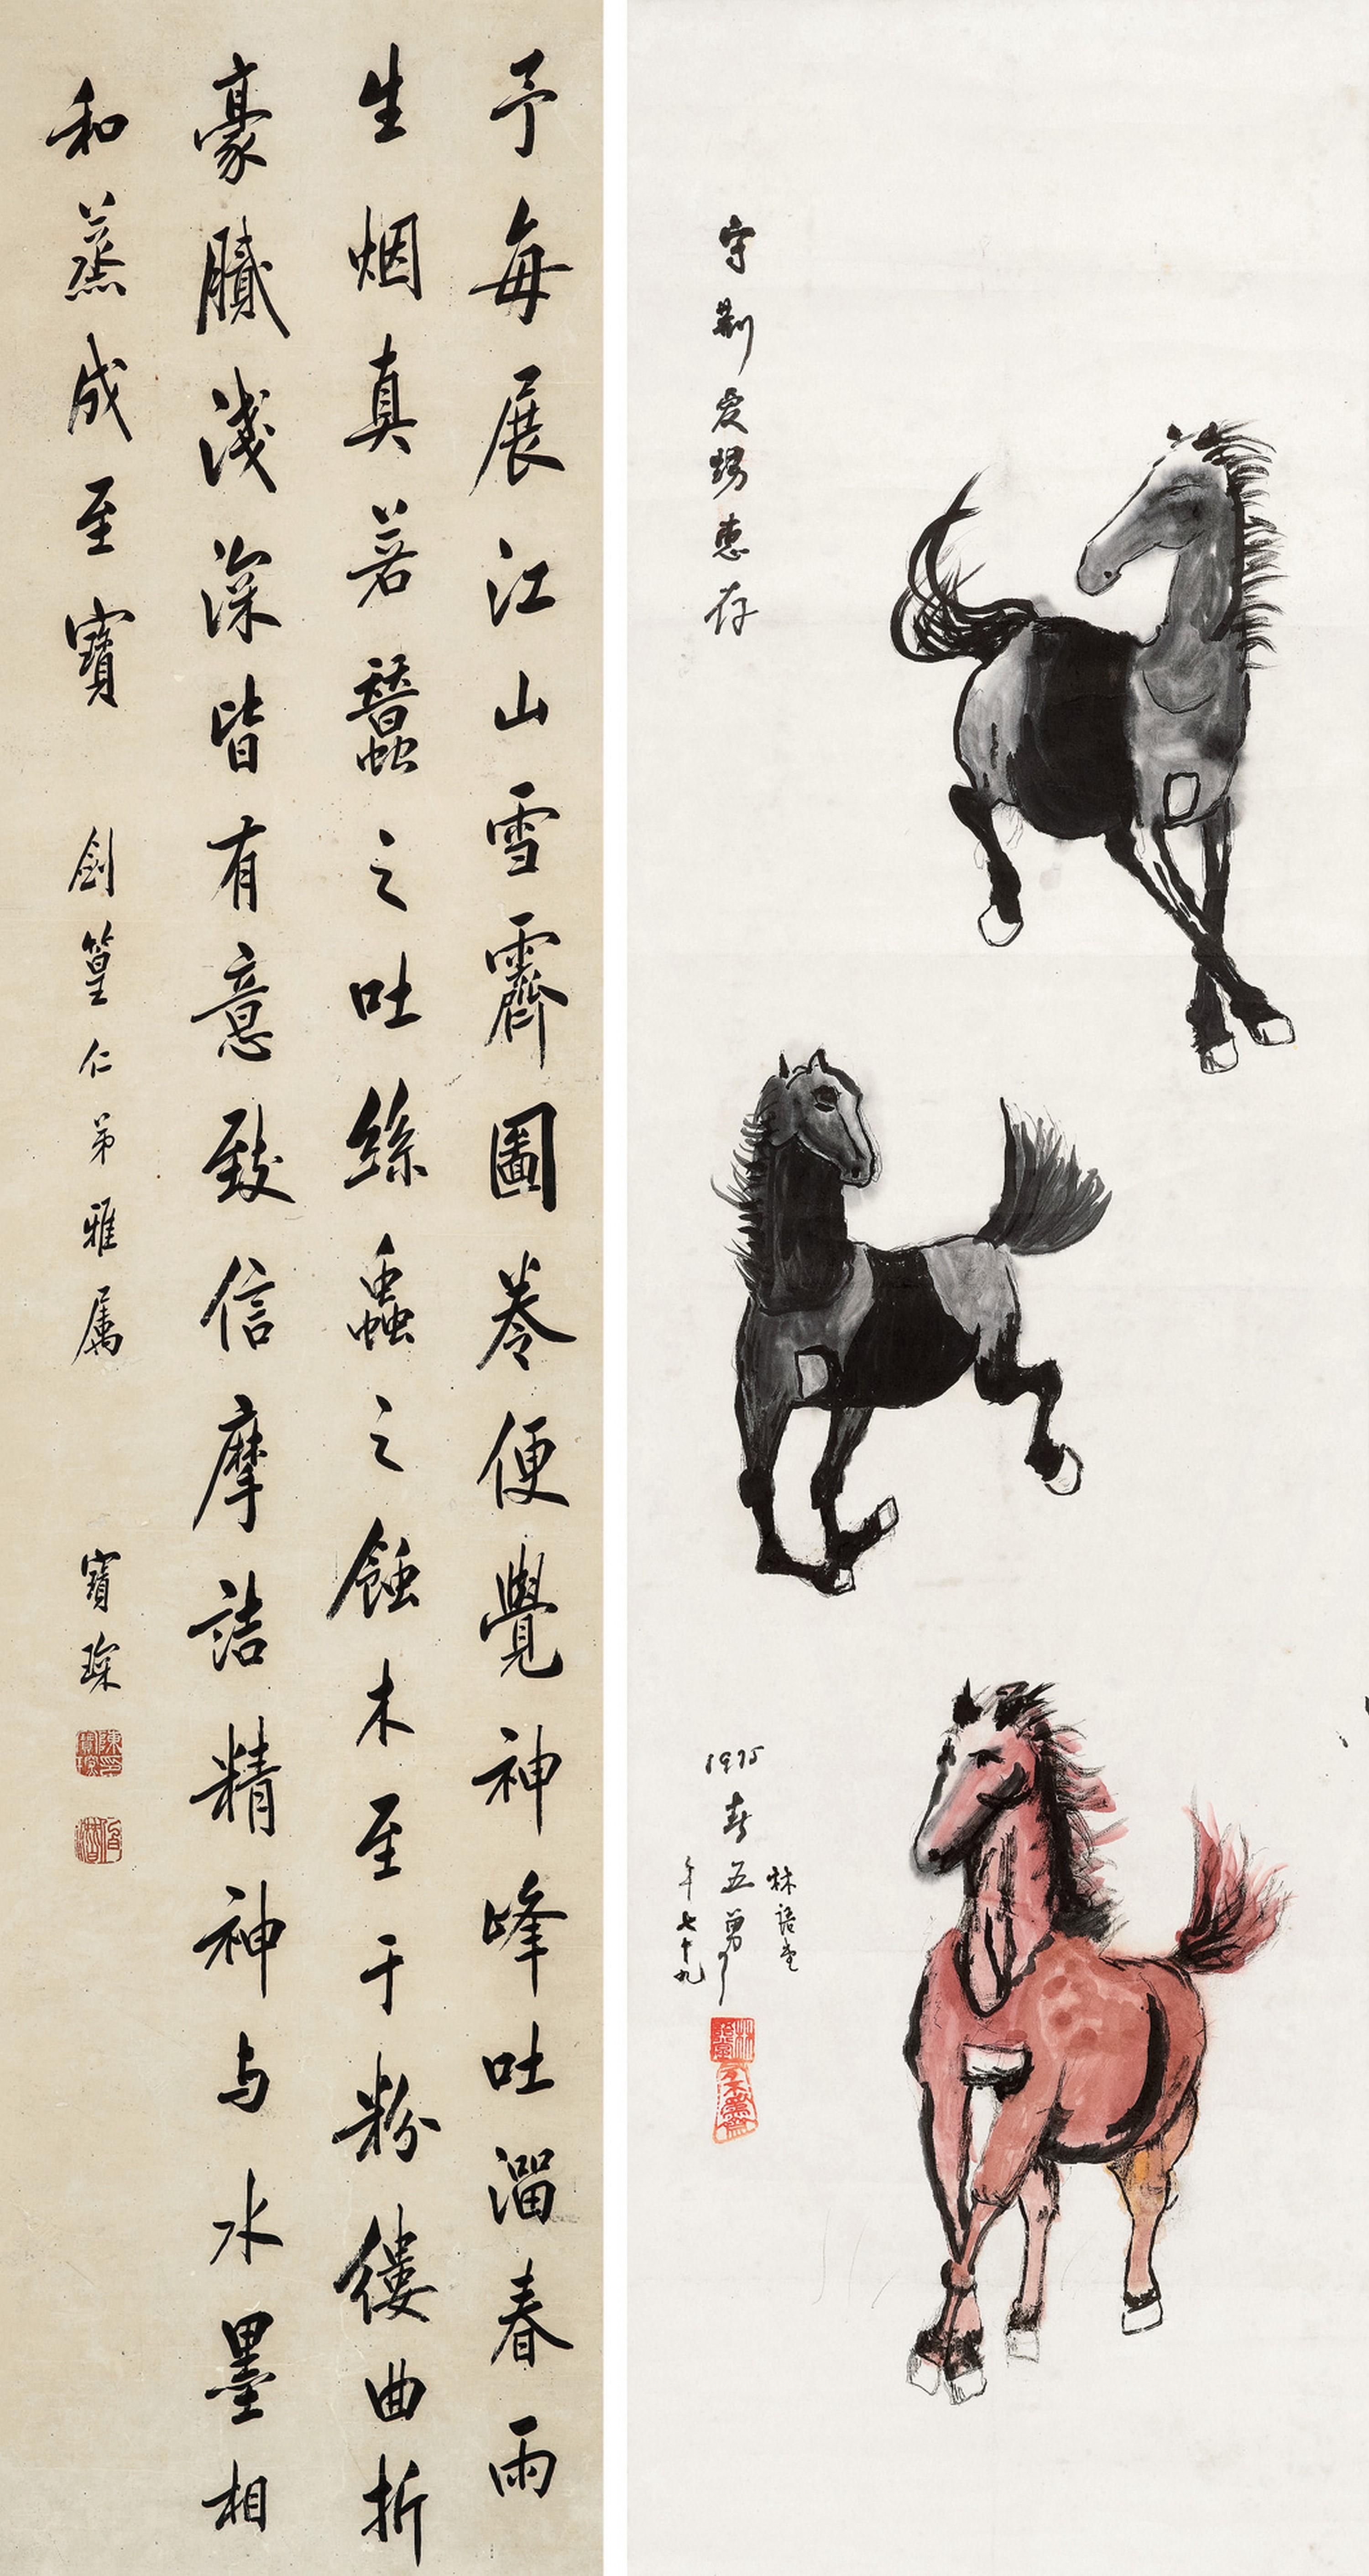 予每展江山雪霽圖卷便覺神峰吐溜春雨
生烟真若蠶之吐絲蟲之蝕木至于粉縷曲折
豪膩淺深皆有意致信摩詰精神与水墨相
和蒸成至寶
劍篁仁弟雅属
寶琛
守荆爱甥惠存
林語堂
1975春五舅
年七十九